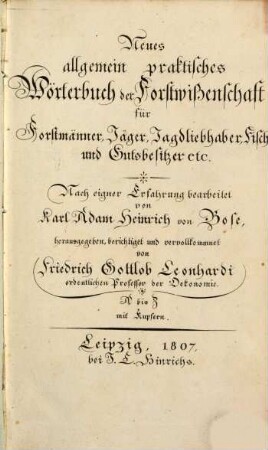 Neues
allgemein praktisches
Wörterbuch der Forstwißenschaft
für
Forstmänner, Jäger, Jagdliebhaber, Fisch
und Gutsbesitzer etc.
Nach eigner Erfahrung bearbeitet
von
Karl Adam Heinrich von Bose,
herausgegeben, berichtiget und vervollkommnet
von
Friedrich Gottlob Leonhardi
ordentlichen Professor der Oekonomie.
A bis Z
mit Kupfern.
Leipzig, 1807.
bei J. C. Hinrichs.